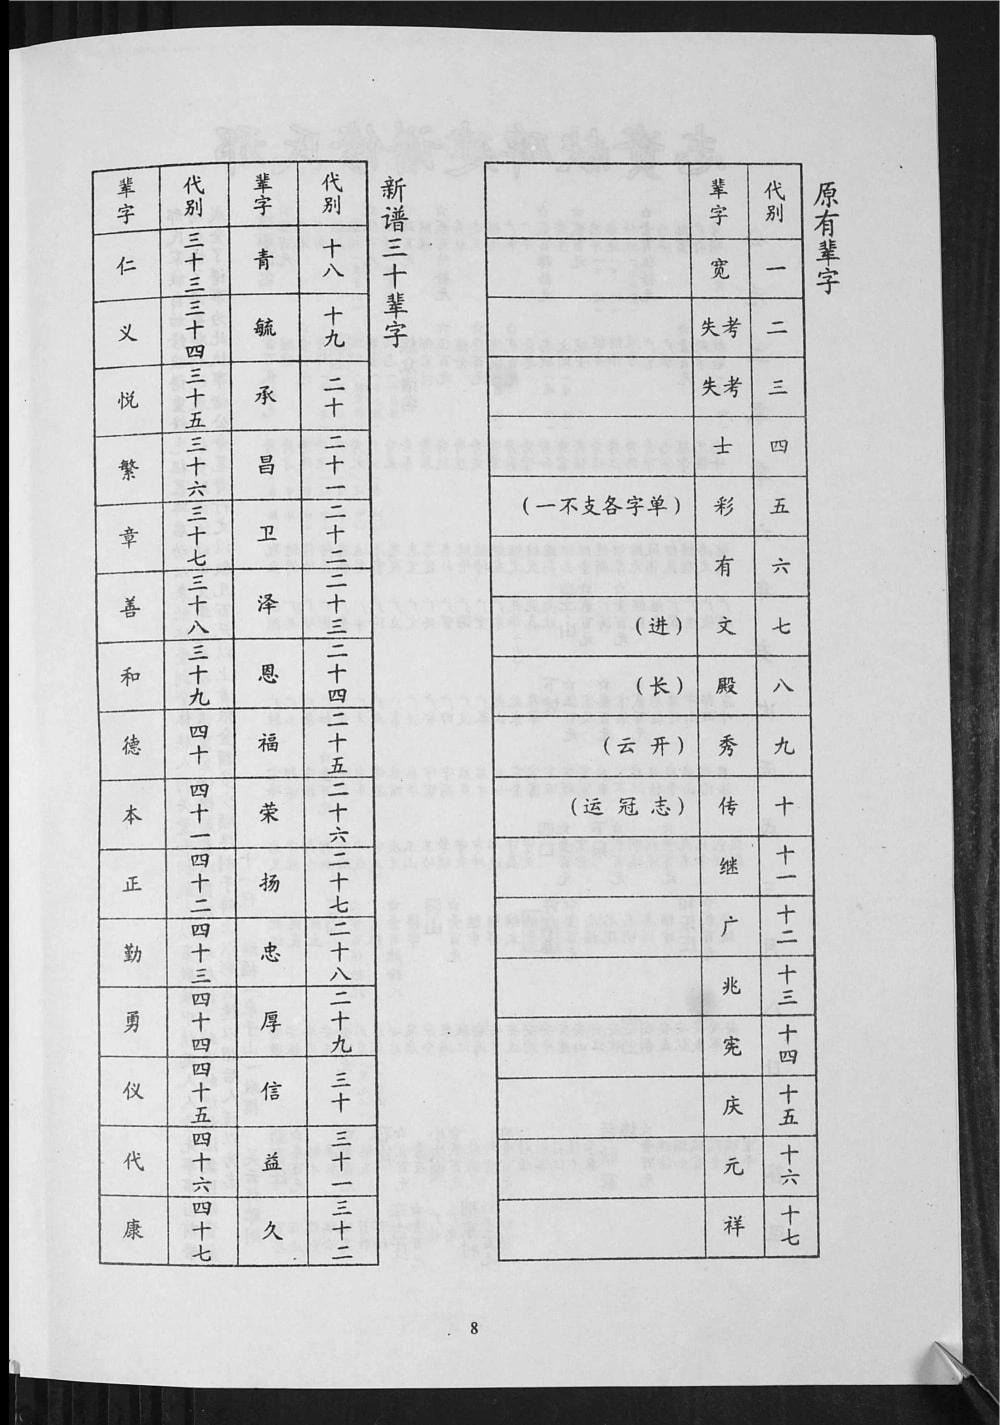 原有辈字
代别 辈字
一 宽
二 失考
三 失考
四 士
五 彩 (单字各支不一)
六 有
七 文 (进)
八 殿 (长)
九 秀 (开云)
十 传 (志冠运)
十一 继
十二 广
十三 兆
十四 宪
十五 庆
十六 元
十七 祥
新谱三十辈字
代别 辈字 代别 辈字
十八 青 三十三 仁
十九 毓 三十四 义
二十 承 三十五 悦
二十一 昌 三十六 繁
二十二 卫 三十七 章
二十三 泽 三十八 善
二十四 恩 三十九 和
二十五 福 四十 德
二十六 荣 四十一 本
二十七 扬 四十二 正
二十八 忠 四十三 勤
二十九 厚 四十四 勇
三十 信 四十五 仪
三十一 益 四十六 代
三十二 久 四十七 康
8